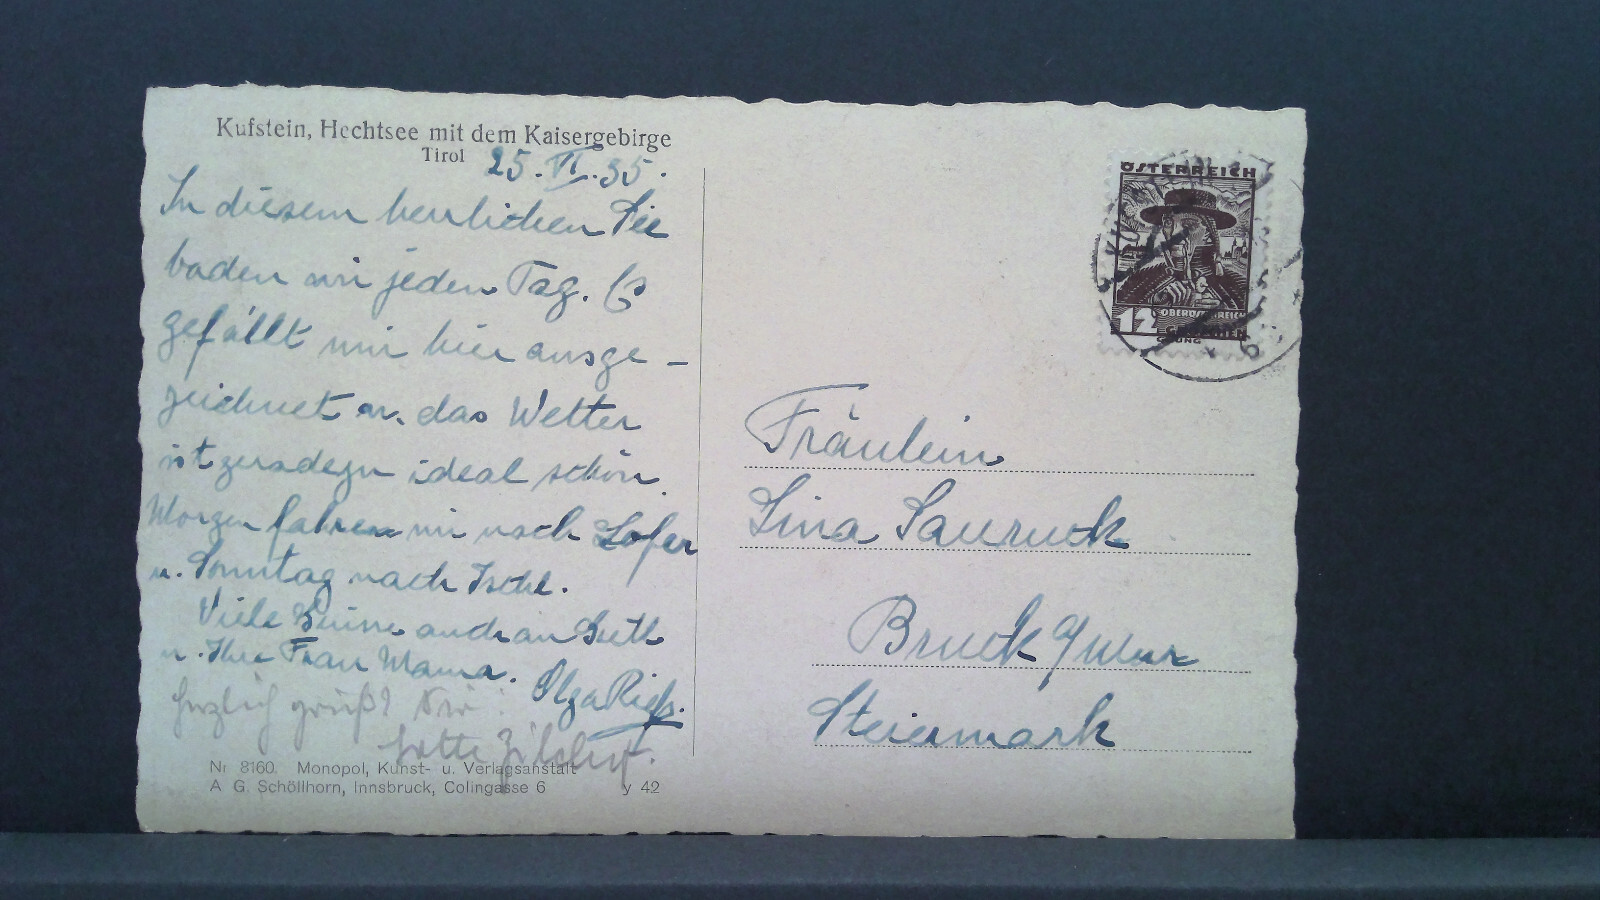 Kufstein, Hechtsee mit dem Kaisergebirge
Tirol
25. VI. 35.
In diesem herrlichen See
baden wir jeden Tag. Es
gefällt mir hier ausge-
zeichnet u. das Wetter
ist geradezu ideal schön.
Morgen fahren wir nach Lofer
u. Sonntag nach Ischl.
Viele Grüsse auch an
u. Ihre Frau Mama. Olga
herzlich grüßt Sie
Lotte
Nr 8160. Monopol, Kunst- u. Verlagsanstalt
A G. Schöllhorn, Innsbruck, Colingasse 6 y 42
ÖSTERREICH
12 OBERÖSTERREICH
GROSCHEN
Fräulein
Lina Sauruck
Bruck a/Mur
Steiermark